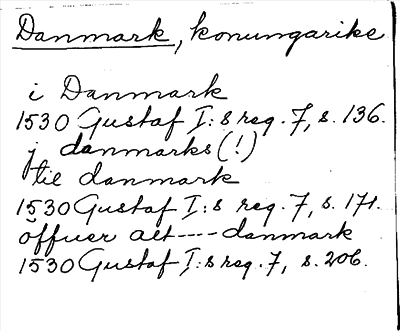 Danmark, konungarike
i Danmark
1530 Gustaf I:s reg. 7, s. 136.
j danmarks (!)
till danmark
1530 Gustaf I:s reg. 7, s. 171.
offuer alt ---- danmark
1530 Gustaf I:s reg. 7, s. 206.